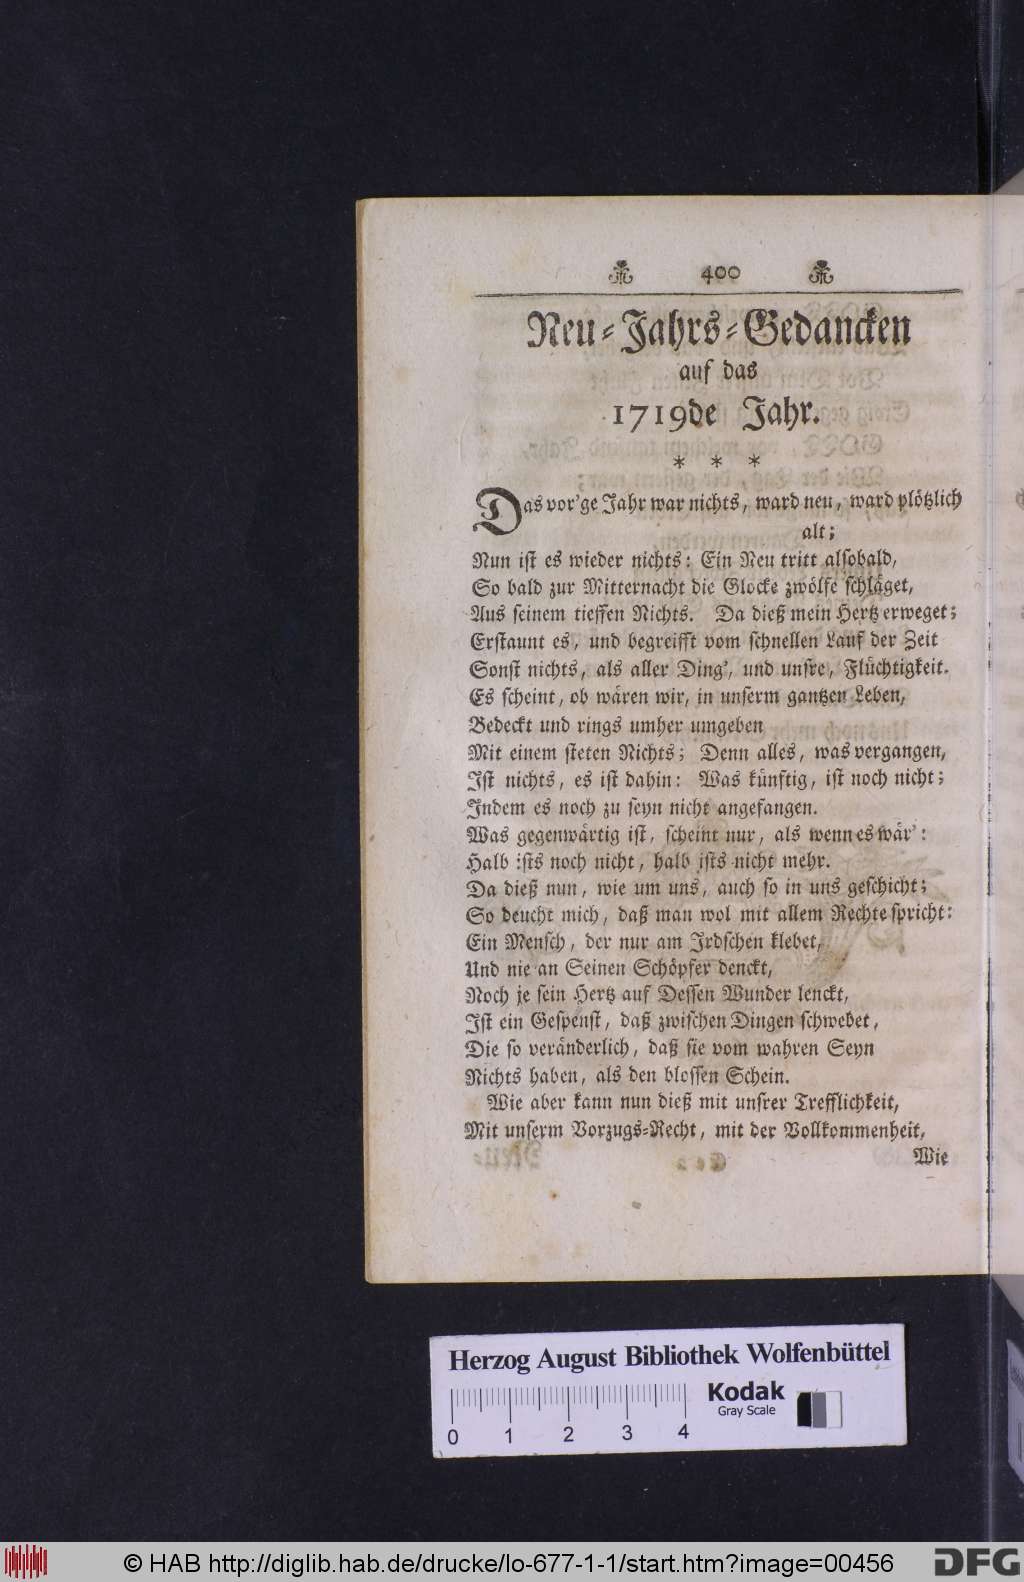 400
Neu-Jahrs-Gedancken
auf das
1719de Jahr.
* * *
Das vor'ge Jahr war nichts, ward neu, ward plötzlich
alt;
Nun ist es wieder nichts: Ein Neu tritt alsobald,
So bald zur Mitternacht die Glocke zwölfe schläget,
Aus seinem tieffen Nichts. Da dieß mein Hertz erweget;
Erstaunt es, und begreifft vom schnellen Lauf der Zeit
Sonst nichts, als aller Ding', und unsre, Flüchtigkeit.
Es scheint, ob wären wir, in unserm gantzen Leben,
Bedeckt und rings umher umgeben
Mit einem steten Nichts; Denn alles, was vergangen,
Ist nichts, es ist dahin: Was künftig, ist noch nicht;
Indem es noch zu seyn nicht angefangen.
Was gegenwärtig ist, scheint nur, als wenn es wär':
Halb ists noch nicht, halb ists nicht mehr.
Da dieß nun, wie um uns, auch so in uns geschicht;
So deucht mich, daß man wol mit allem Rechte spricht:
Ein Mensch, der nur am Irdschen klebet,
Und nie an Seinen Schöpfer denckt,
Noch je sein Hertz auf Dessen Wunder lenckt,
Ist ein Gespenst, daß zwischen Dingen schwebet,
Die so veränderlich, daß sie vom wahren Seyn
Nichts haben, als den blossen Schein.
Wie aber kann nun dieß mit unsrer Trefflichkeit,
Mit unserm Vorzugs-Recht, mit der Vollkommenheit,
Wie
Herzog August Bibliothek Wolfenbüttel
Kodak
Gray Scale
0 1 2 3 4
© HAB http://diglib.hab.de/drucke/lo-677-1-1/start.htm?image=00456
DFG